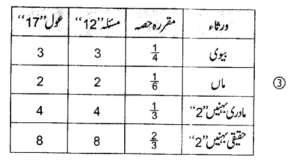 ورثاء مقررہ حصہ مسئلہ "12" عول "17"
بیوی 1/4 3 3
ماں 1/6 2 2
مادری بہنیں "2" 1/3 4 4
حقیقی بہنیں "2" 2/3 8 8
③